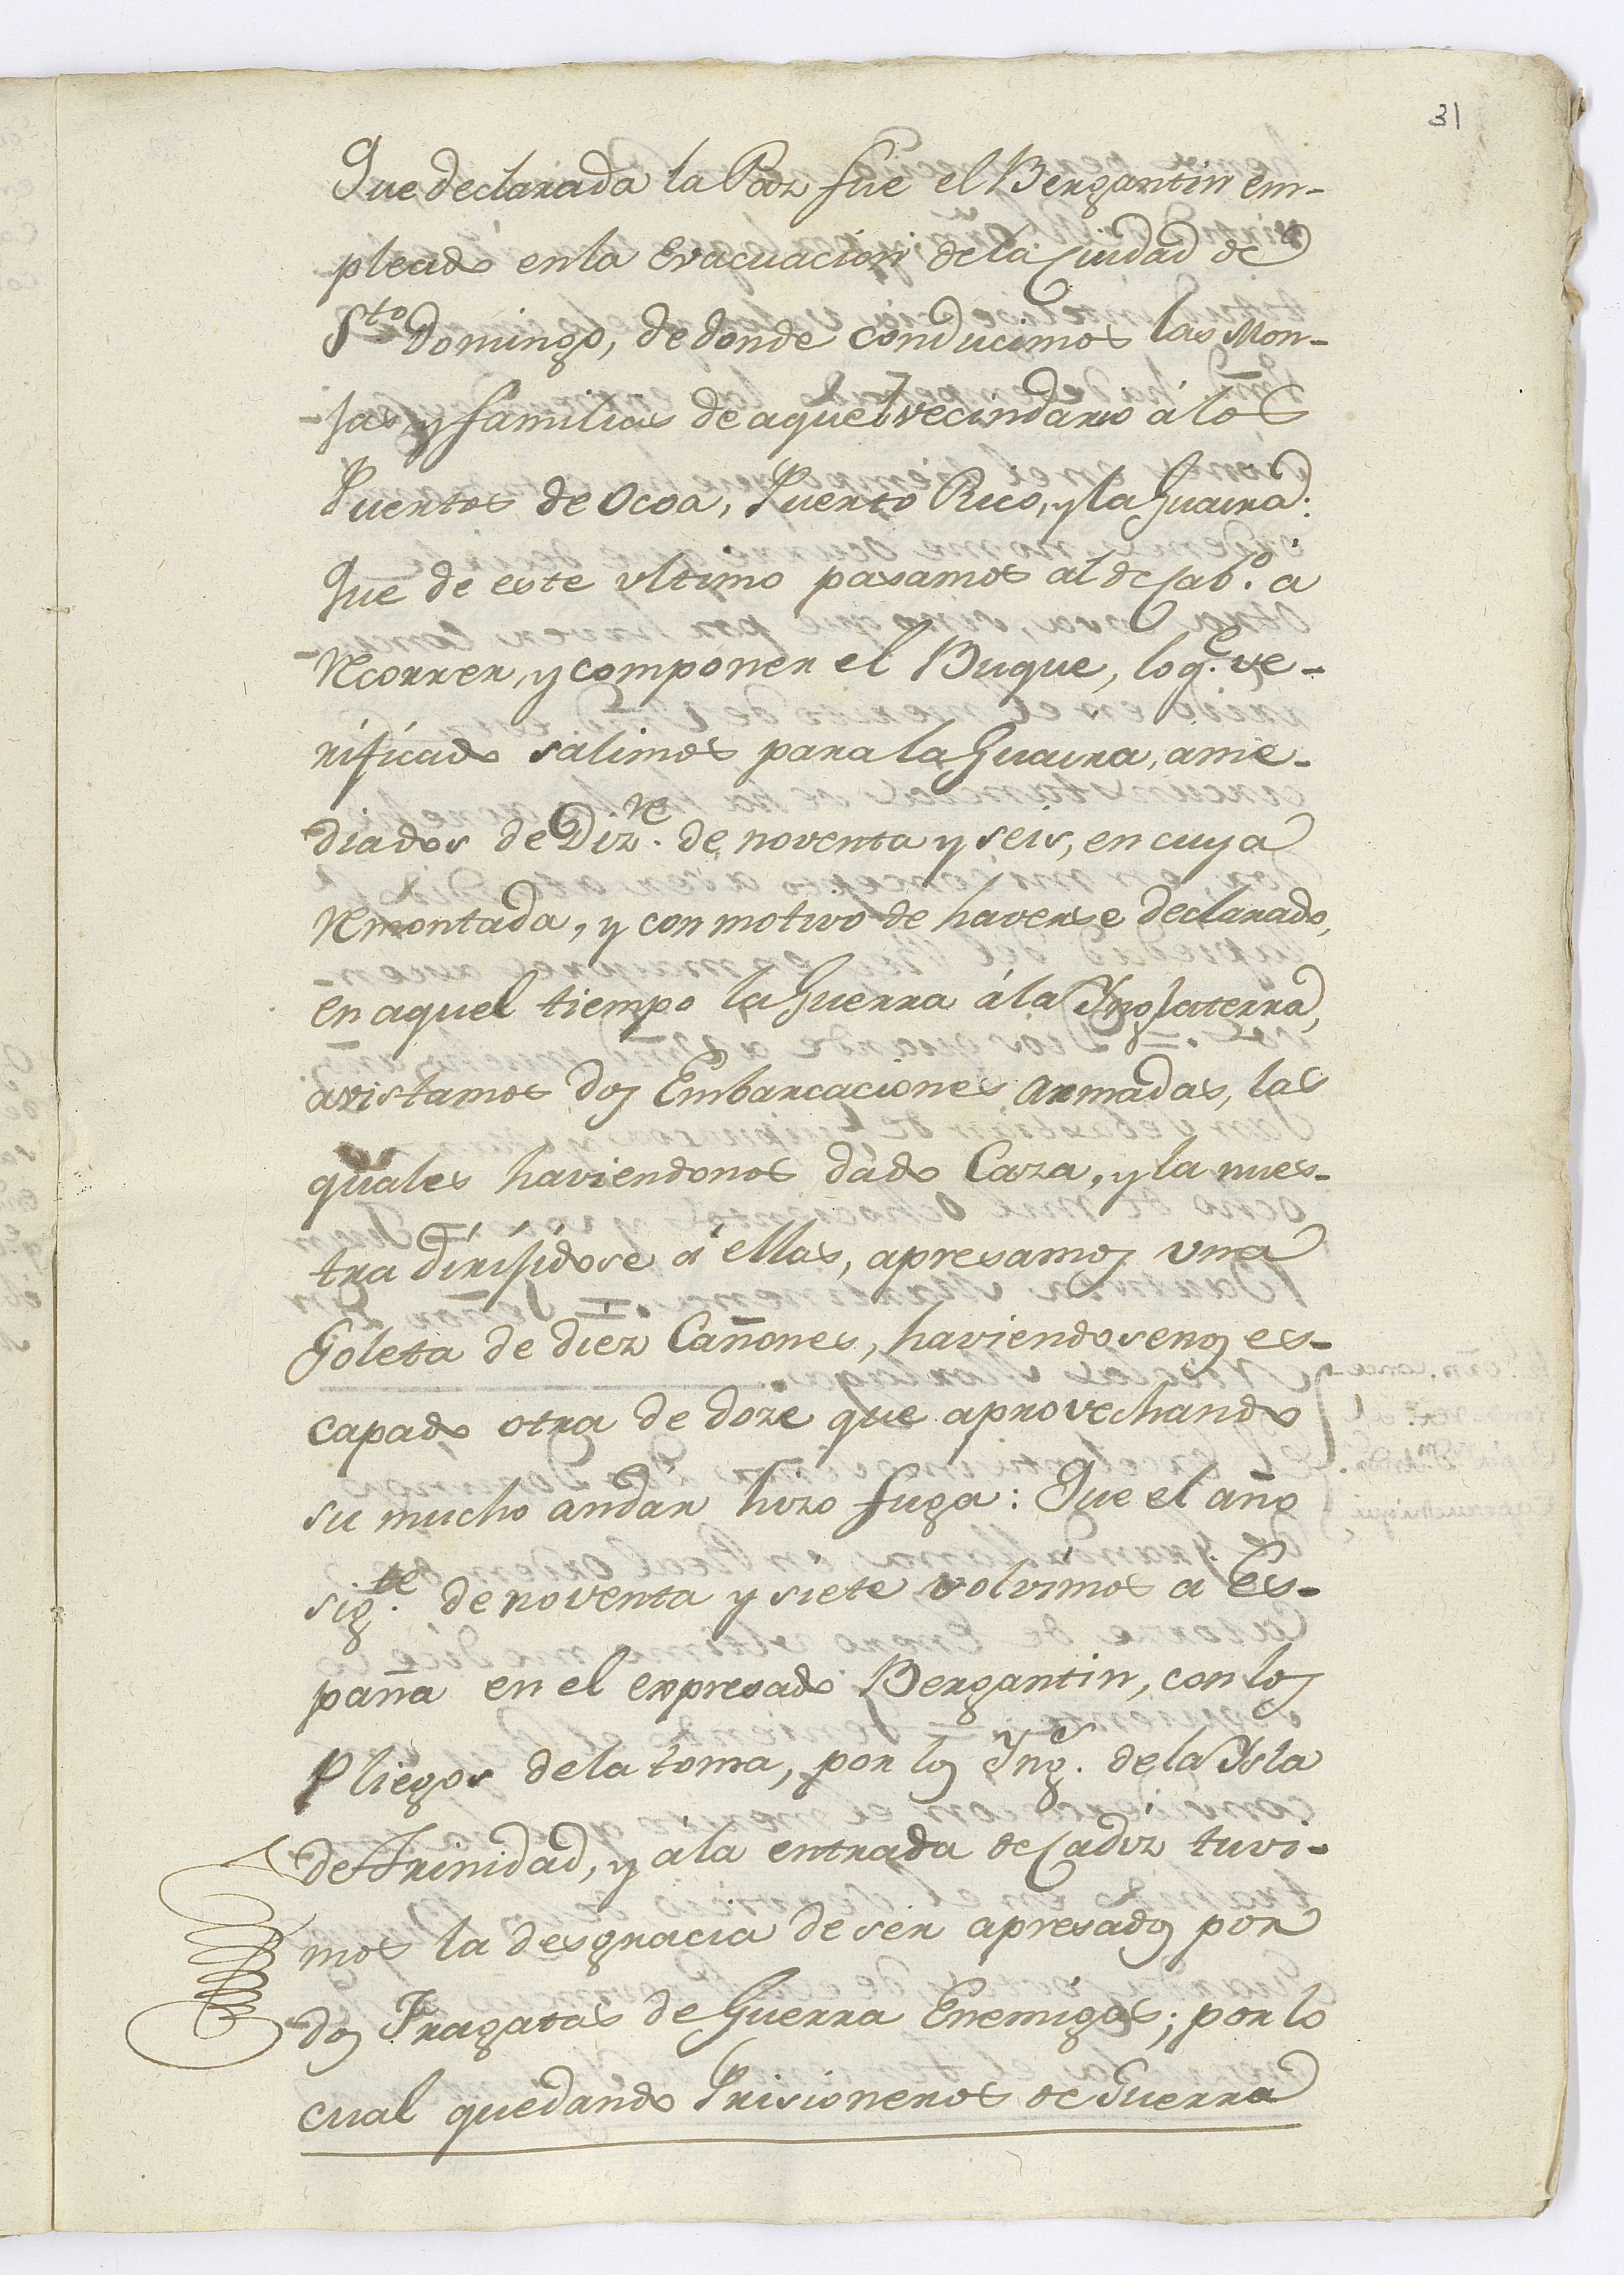 31
Que declarada la Paz fue el Bergantin em-
pleado en la Evacuacion de la Ciudad de
Sto. Domingo, de donde conducimos las Mon-
jas, y familias de aquel vecindario á los
Puertos de Ocoa, Puerto Rico, y la Guaira:
Que de este ultimo pasamos al de Cabo. a
recorrer, y componer el Buque, lo q.e ve-
rificado salimos para la Guaira, a me-
diados de Diz.re de noventa y seis, en cuya
remontada, y con motivo de haverse declarado,
en aquel tiempo la Guerra á la Ynglaterra,
avistamos dos Embarcaciones armadas, las
quales haviendonos dado Caza, y la nues-
tra dirijidose á ellas, apresamos una
Goleta de diez Cañones, haviendosenos es-
capado otra de doze que aprovechando
su mucho andar hizo fuga: Que el año
sig.te de noventa y siete volvimos a Es-
paña en el expresado Bergantin, con los
Pliegos de la toma, por los Yng.s de la Ysla
de Trinidad, y á la entrada de Cadiz tuvi-
mos la desgracia de ser apresados por
dos Fragatas de Guerra Enemigas; por lo
cual quedando Prisioneros de Guerra